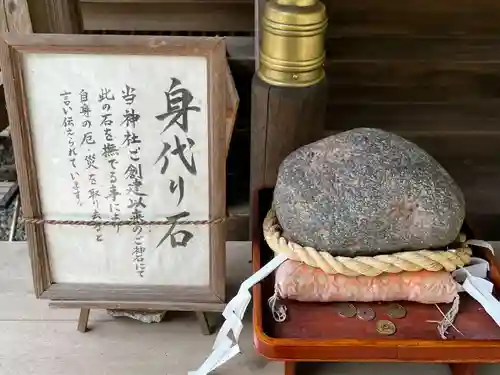 身代り石
当神社ご創建以来のご神石にて
此の石を撫でる事により
自身の厄・災を取り去ると
言い伝えられています。